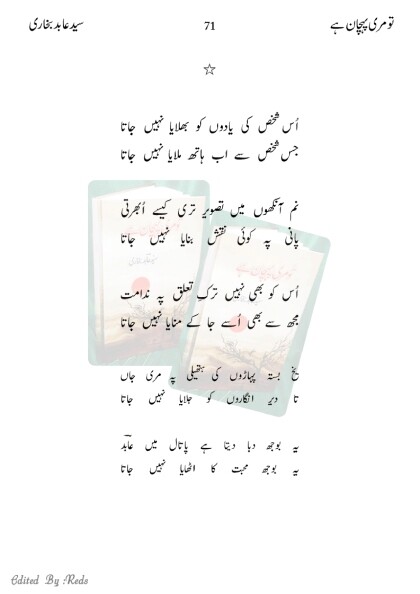 تو مری پہچان ہے 71 سید عابد بخاری
☆
اُس شخص کی یادوں کو بھلایا نہیں جاتا
جس شخص سے اب ہاتھ ملایا نہیں جاتا
نم آنکھوں میں تصویر تری کیسے اُبھرتی
پانی پہ کوئی نقش بنایا نہیں جاتا
اُس کو بھی نہیں ترکِ تعلق پہ ندامت
مجھ سے بھی اُسے جا کے منایا نہیں جاتا
یخ بستہ پہاڑوں کی ہتھیلی پہ مری جاں
تا دیر انگاروں کو جلایا نہیں جاتا
یہ بوجھ دبا دیتا ہے پاتال میں عابدؔ
یہ بوجھ محبت کا اٹھایا نہیں جاتا
Edited By Reds